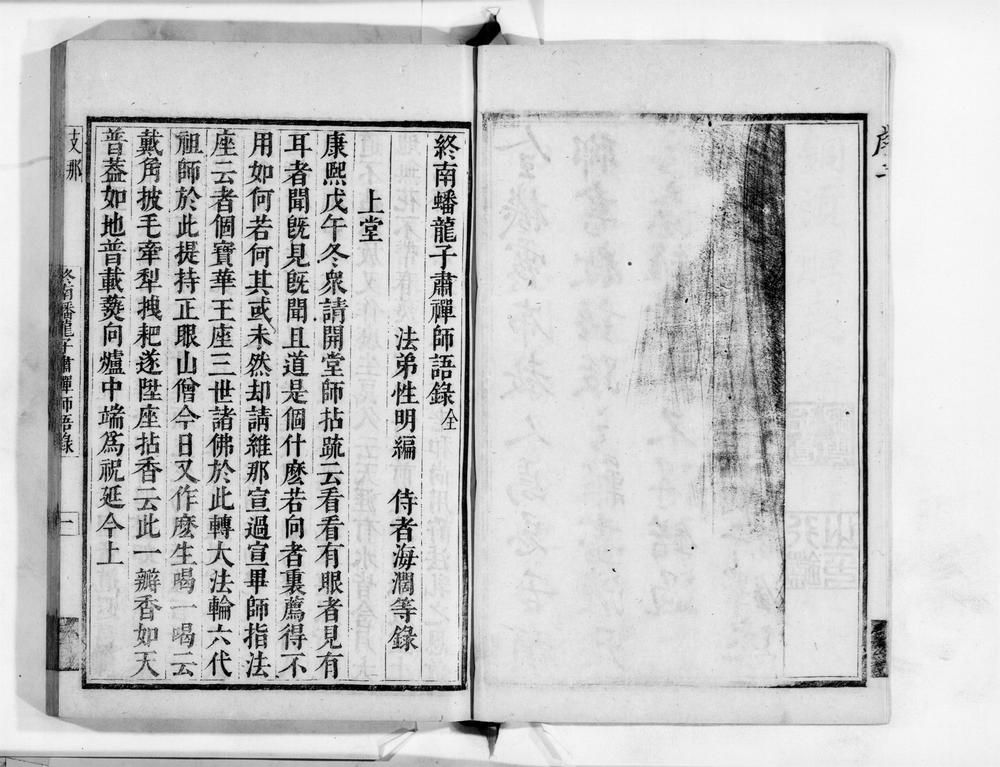 序二
終南蟠龍子肅禪師語錄全
法弟性明編　侍者海濶等錄
上堂
康熙戊午冬衆請開堂師拈䟽云看看有眼者見有
耳者聞旣見旣聞且道是個什麽若向者裏薦得不
用如何若何其或未然却請維那宣過宣畢師指法
座云者個寶華王座三世諸佛於此轉大法輪六代
祖師於此提持正眼山僧今日又作麽生喝一喝云
戴角披毛牽犁拽耙遂陞座拈香云此一瓣香如天
普葢如地普載爇向爐中端爲祝延今上
支那
終南蟠龍子肅禪師語錄
一